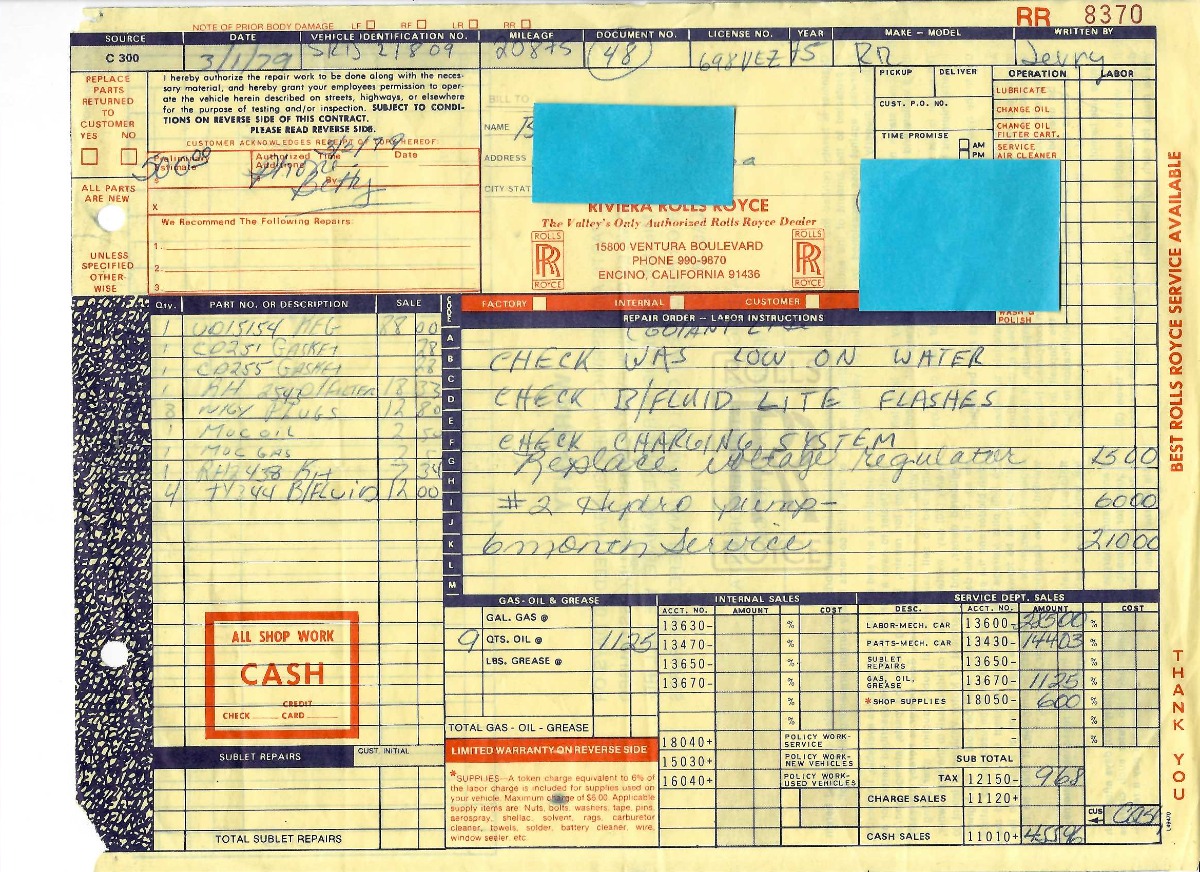 NOTE OF PRIOR BODY DAMAGE LF RF LR RR
RR 8370
SOURCE DATE VEHICLE IDENTIFICATION NO. MILEAGE DOCUMENT NO. LICENSE NO. YEAR MAKE - MODEL WRITTEN BY
C 300 3/1/79 SRD 21809 20875 48 698VEZ 75 RR Jerry
REPLACE PARTS RETURNED TO CUSTOMER
YES NO
ALL PARTS ARE NEW
UNLESS SPECIFIED OTHERWISE
I hereby authorize the repair work to be done along with the neces-
sary material, and hereby grant your employees permission to oper-
ate the vehicle herein described on streets, highways, or elsewhere
for the purpose of testing and/or inspection. SUBJECT TO CONDI-
TIONS ON REVERSE SIDE OF THIS CONTRACT.
PLEASE READ REVERSE SIDE.
CUSTOMER ACKNOWLEDGES RECEIPT OF COPY HEREOF:
Preliminary Estimate Authorized Additions Time Date
$ By
3/2/79
Phone
Betty
X
We Recommend The Following Repairs:
1.
2.
3.
BILL TO
NAME
ADDRESS
CITY STAT
RIVIERA ROLLS ROYCE
The Valley's Only Authorized Rolls Royce Dealer
ROLLS RR ROYCE
15800 VENTURA BOULEVARD
PHONE 990-9870
ENCINO, CALIFORNIA 91436
ROLLS RR ROYCE
PICKUP DELIVER
CUST. P.O. NO.
TIME PROMISE
AM
PM
OPERATION LABOR
LUBRICATE
CHANGE OIL
CHANGE OIL FILTER CART.
SERVICE AIR CLEANER
WASH & POLISH
Qty. PART NO. OR DESCRIPTION SALE
1 UD15154 88 00
1 CD251 GASKET 28
1 CD255 GASKET 28
1 RH 2540 O/FILTER 18 33
8 NKY PLUGS 12 80
1 MOC OIL 2 50
1 MOC GAS 2 5
1 RH2438 RH 7 34
4 TY244 B/FLUID 12 00
CODE
A
B
C
D
E
F
G
H
I
J
K
L
M
FACTORY INTERNAL CUSTOMER
REPAIR ORDER - LABOR INSTRUCTIONS
COOLANT LITE
CHECK WAS LOW ON WATER
CHECK B/FLUID LITE FLASHES
CHECK CHARGING SYSTEM
Replace voltage regulator 1500
#2 Hydro pump- 6000
6 month Service 21000
ROLLS ROYCE
ALL SHOP WORK
CASH
CHECK CREDIT CARD
SUBLET REPAIRS CUST. INITIAL
TOTAL SUBLET REPAIRS
GAS- OIL & GREASE
GAL. GAS @
9 QTS. OIL @ 1125
LBS. GREASE @
TOTAL GAS - OIL - GREASE
LIMITED WARRANTY ON REVERSE SIDE
*SUPPLIES—A token charge equivalent to 6% of
the labor charge is included for supplies used on
your vehicle. Maximum charge of $6.00. Applicable
supply items are Nuts, bolts, washers, tape, pins,
aerospray, shellac, solvent, rags, carburetor
cleaner, towels, solder, battery cleaner, wire,
window sealer, etc.
INTERNAL SALES
ACCT. NO. AMOUNT COST
13630- %
13470- %
13650- %
13670- %
%
%
18040+ POLICY WORK-SERVICE
15030+ POLICY WORK-NEW VEHICLES
16040+ POLICY WORK-USED VEHICLES
SERVICE DEPT. SALES
DESC. ACCT. NO. AMOUNT COST
LABOR-MECH. CAR 13600- 28500 %
PARTS-MECH. CAR 13430- 14403 %
SUBLET REPAIRS 13650- %
GAS, OIL, GREASE 13670- 1125 %
*SHOP SUPPLIES 18050- 600 %
- %
- %
SUB TOTAL
TAX 12150- 968
CHARGE SALES 11120+
CASH SALES 11010+ 45596
CUS CASH
BEST ROLLS ROYCE SERVICE AVAILABLE
THANK YOU